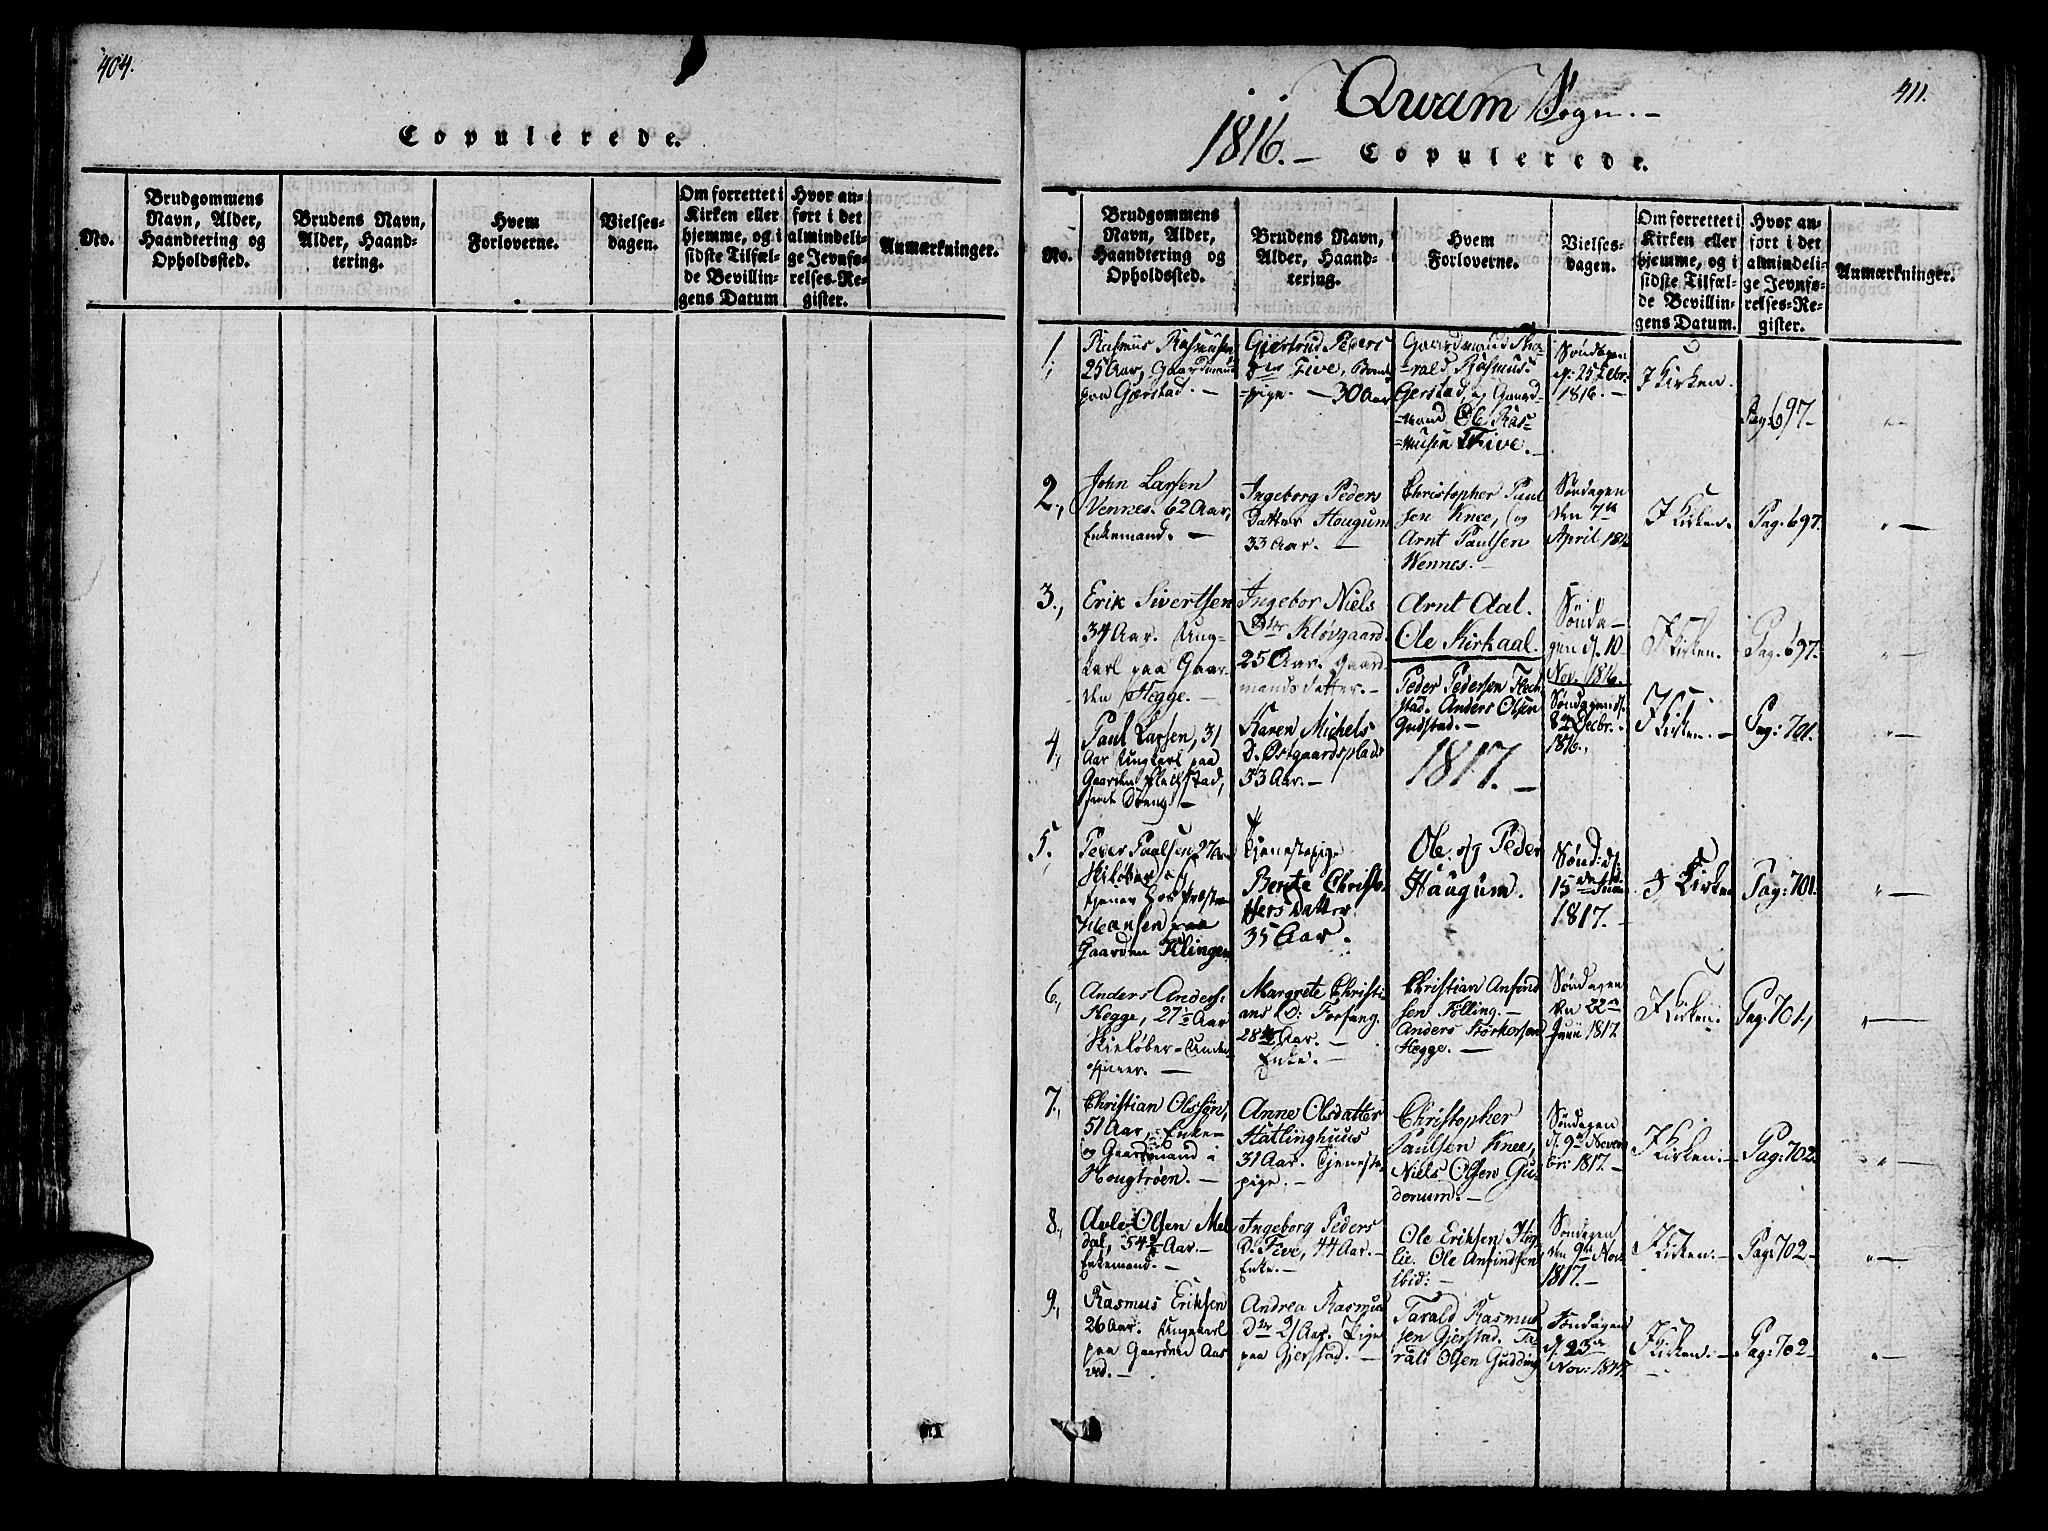 404.
Copulerede.
No.
Brudgommens
Navn, Alder,
Haandtering og
Opholdssted.
Brudens Navn,
Alder, Haand-
tering.
Hvem
Forloverne.
Vielses-
dagen.
Om forrettet i
Kirken eller
hjemme, og i
sidste Tilfæl-
de Bevillin-
gens Datum
Hvor an-
ført i det
almindeli-
ge Jevnfø-
relses-Re-
gister.
Anmærkninger.
411.
Qvam Sogn.-
1816.-
Copulerede.
No.
Brudgommens
Navn, Alder,
Haandtering og
Opholdssted.
Brudens Navn,
Alder, Haand-
tering.
Hvem
Forloverne.
Vielses-
dagen.
Om forrettet i
Kirken eller
hjemme, og i
sidste Tilfæl-
de Bevillin-
gens Datum.
Hvor an-
ført i det
almindeli-
ge Jevnfø-
relses-Re-
gister.
Anmærkninger.
1.,
Rasmus Rasmusen
25 Aar, Gaardmand
paa Gjærstad. -
Giertrud Peders
Dtr Five, Bonde
=pige. - 30 Aar
Gaardmand Tha-
=rald Rasmus:
Gjerstad, og Gaard-
=mand Ole Ras-
=musen Five. -
Søndagen
d: 25 Febr:
1816. -
I Kirken.
Pag: 697-
"-
2.,
John Larsen
Vennes. 62 Aar,
Enkemand. -
Ingeborg Peders
Datter Hougum
33 Aar. -
Christopher Paul
sen Knee, og
Arnt Paulsen
Wennes. -
Søndagen
den 7de
April 1816
I Kirken.
Pag: 697.
" -
3.,
Erik Sivertsen
34 Aar. Ung-
karl paa Gaar-
den Hegge. -
Ingebor Niels
Dtr Kløvgaard.
25 Aar. Gaard
mandsdatter. -
Arnt Aal.
Ole Kirkaal.
Sønda-
gen d. 10
Nov. 1816.
I Kirken.
Pag. 697.
" -
4.,
Paul Larsen, 31
Aar Ungkarl paa
Gaarden
Karen Michels
D. Østgaardsplads
33 Aar. -
Peder Pedersen Heck
stad. Anders Olsen
Gudstad. -
Søndagen d.
8de Decbr. -
1816.,
I Kirken. -
Pag: 701.
" -
1817. -
5.
Peder Paulsen 27 Aar
Skiløber og
tjener hos Præsten
Hansen paa
Gaarden Klingen
Tjenestepige
Berete Christo-
phers Datter
35 Aar.
Ole og Peder
Haugum.
Sønd: d:
15de Juni
1817. -
I Kirken
Pag: 701.
" -
6.,
Anders Anders:
Hegge, 27 1/2 Aar
Skieløber-Under
officeer. -
Margrete Christi
ans D: Forfang.
28 Aar. -
Enke. -
Christian Anfind
sen Følling. -
Anders Storkorsen
Hegge. -
Søndagen
den 22de
Junii 1817
I Kirken. -
Pag: 701.,
" -
7.,
Christian Olssøn,
51 Aar, Enke-
og Gaardmand i
Hougtrøen. -
Anne Olsdatter
Hatlinghuus
31 Aar. Tjeneste
pige. -
Christopher
Paulsen Knee,
Niels Olsen Gu-
denum. -
Søndagen
d. 9de Novem
br: 1817. -
I Kirken. -
Pag: 702.
" -
8.,
Avle Olsen Mel
dal, 54 Aar. -
Enkemand. -
Ingeborg Peders
D. Five, 44 Aar.-
Enke. -
Ole Eriksen Hog
lie. Ole Anfindsen
ibid: -
Søndagen
den 9de Nov.
1817. -
I Kirken. -
Pag: 702 -
" -
9.,
Rasmus Eriksen
26 Aar. Ungkarl
paa Gaarden Aas
ved. -
Andrea Rasmus
Dtr 21 Aar. Pige
paa Gjerstad. -
Tarald Rasmus
sen Gjerstad. Ta-
rald Olsen Gudding
Søndagen
d. 23de
Nov: 1817.
I Kirken. -
Pag: 702 -
" -